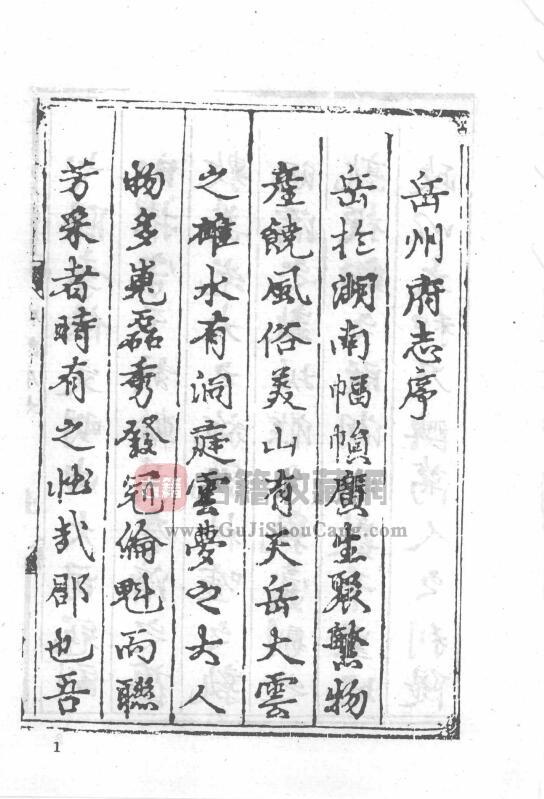 岳州府志序
岳於湖南幅幀廣生聚繁物
產饒風俗美山有天岳大雲
之雄水有洞庭雲夢之大人
物多嵬磊秀發冠倫魁而聯
芳采者時有之壯哉郡也吾
古籍 古籍收藏網
www.GuJiShouCang.com
1